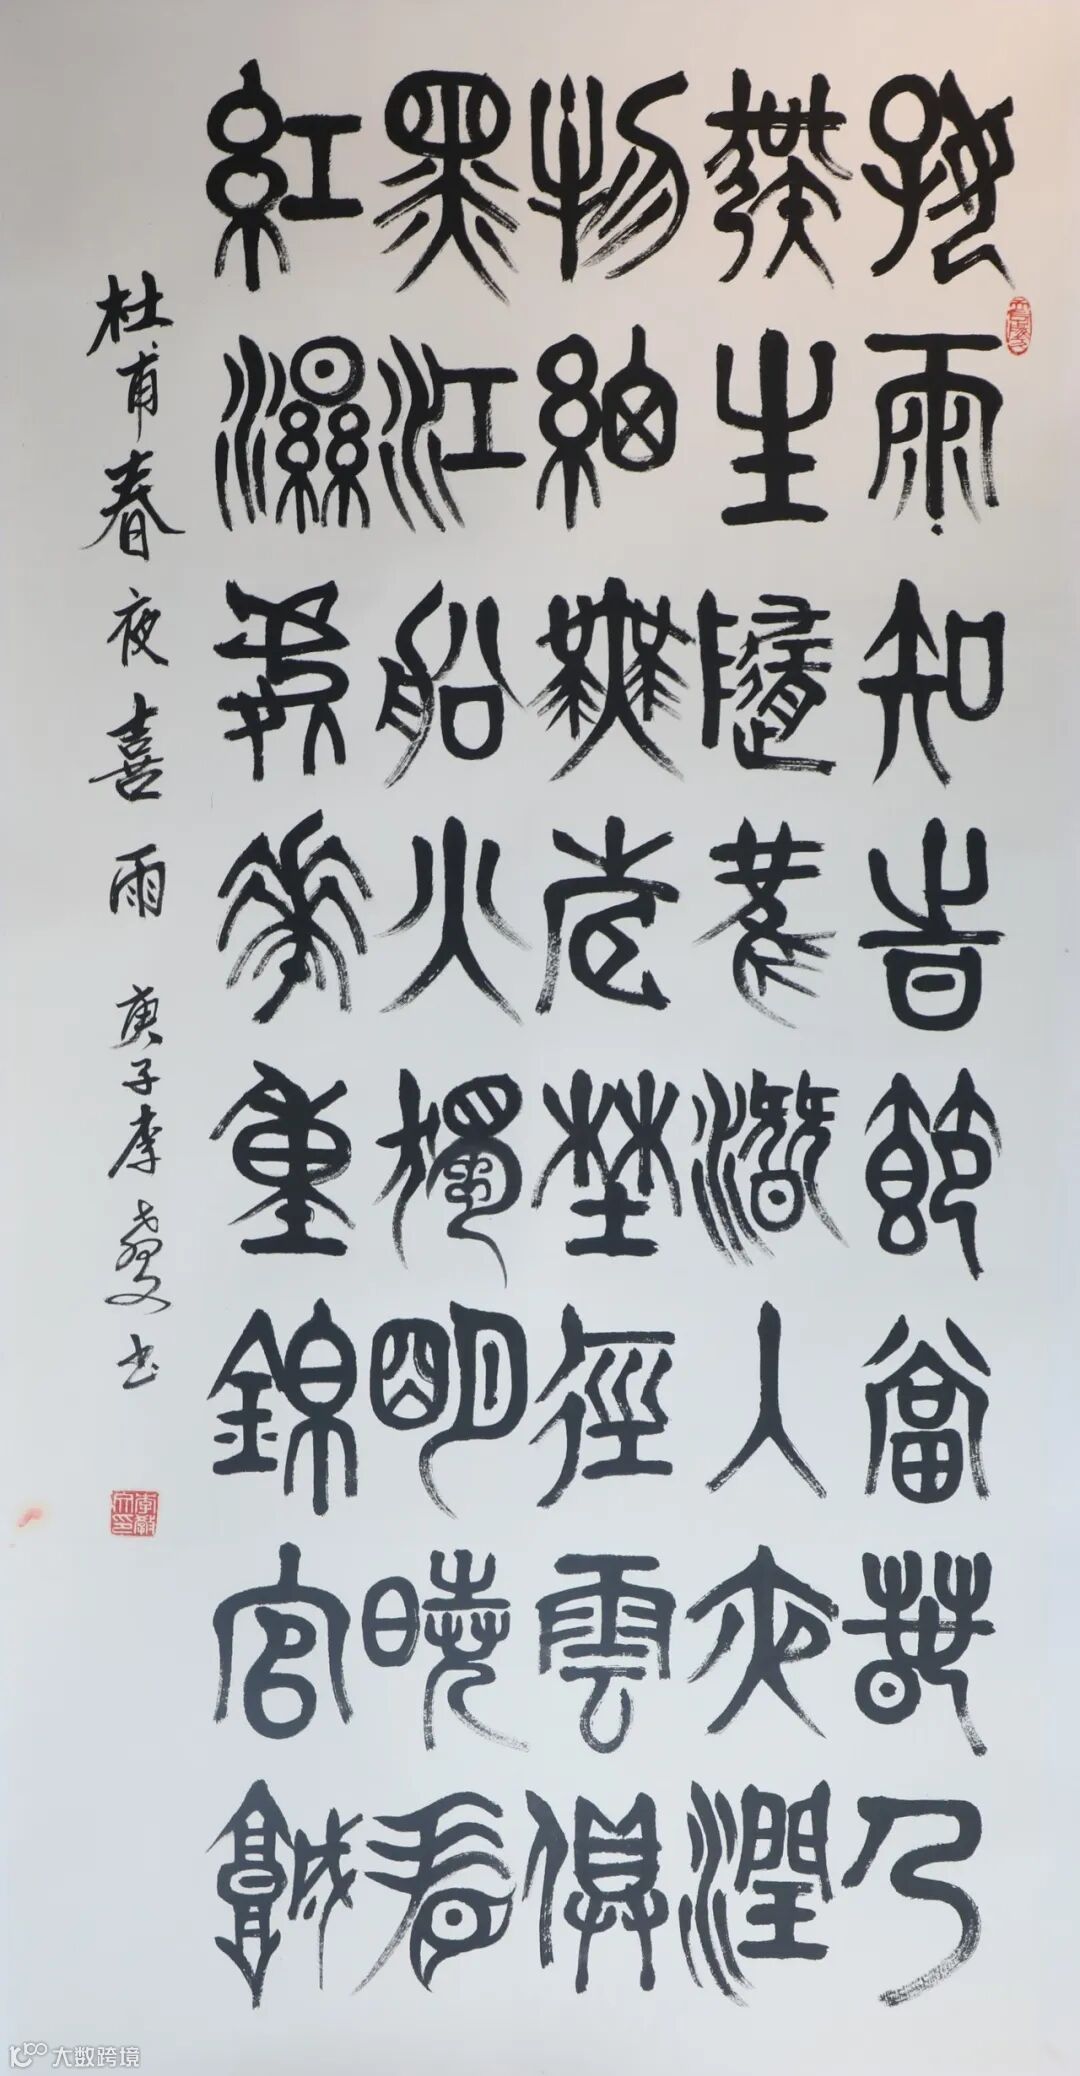 好雨知旹節當春乃
發生隨風潛入夜潤
物細無聲埜徑雲俱
黑江船火獨明曉看
紅濕處花重錦官城
杜甫春夜喜雨 庚子李教书
大数跨境